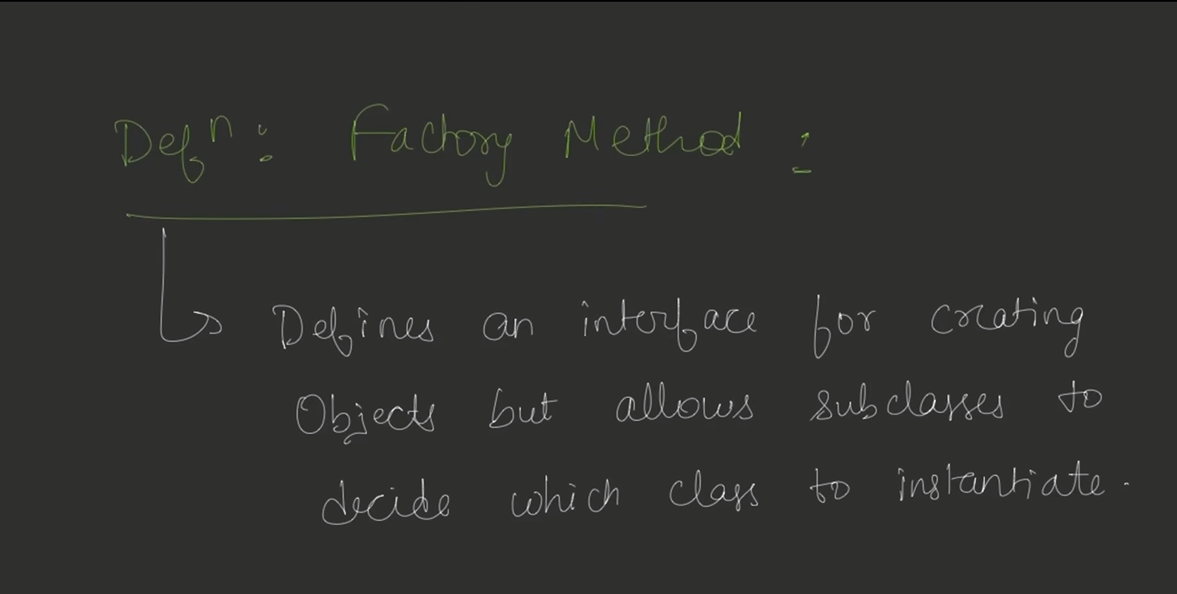 Defⁿ: Factory Method :
Defines an interface for creating
Objects but allows subclasses to
decide which class to instantiate.